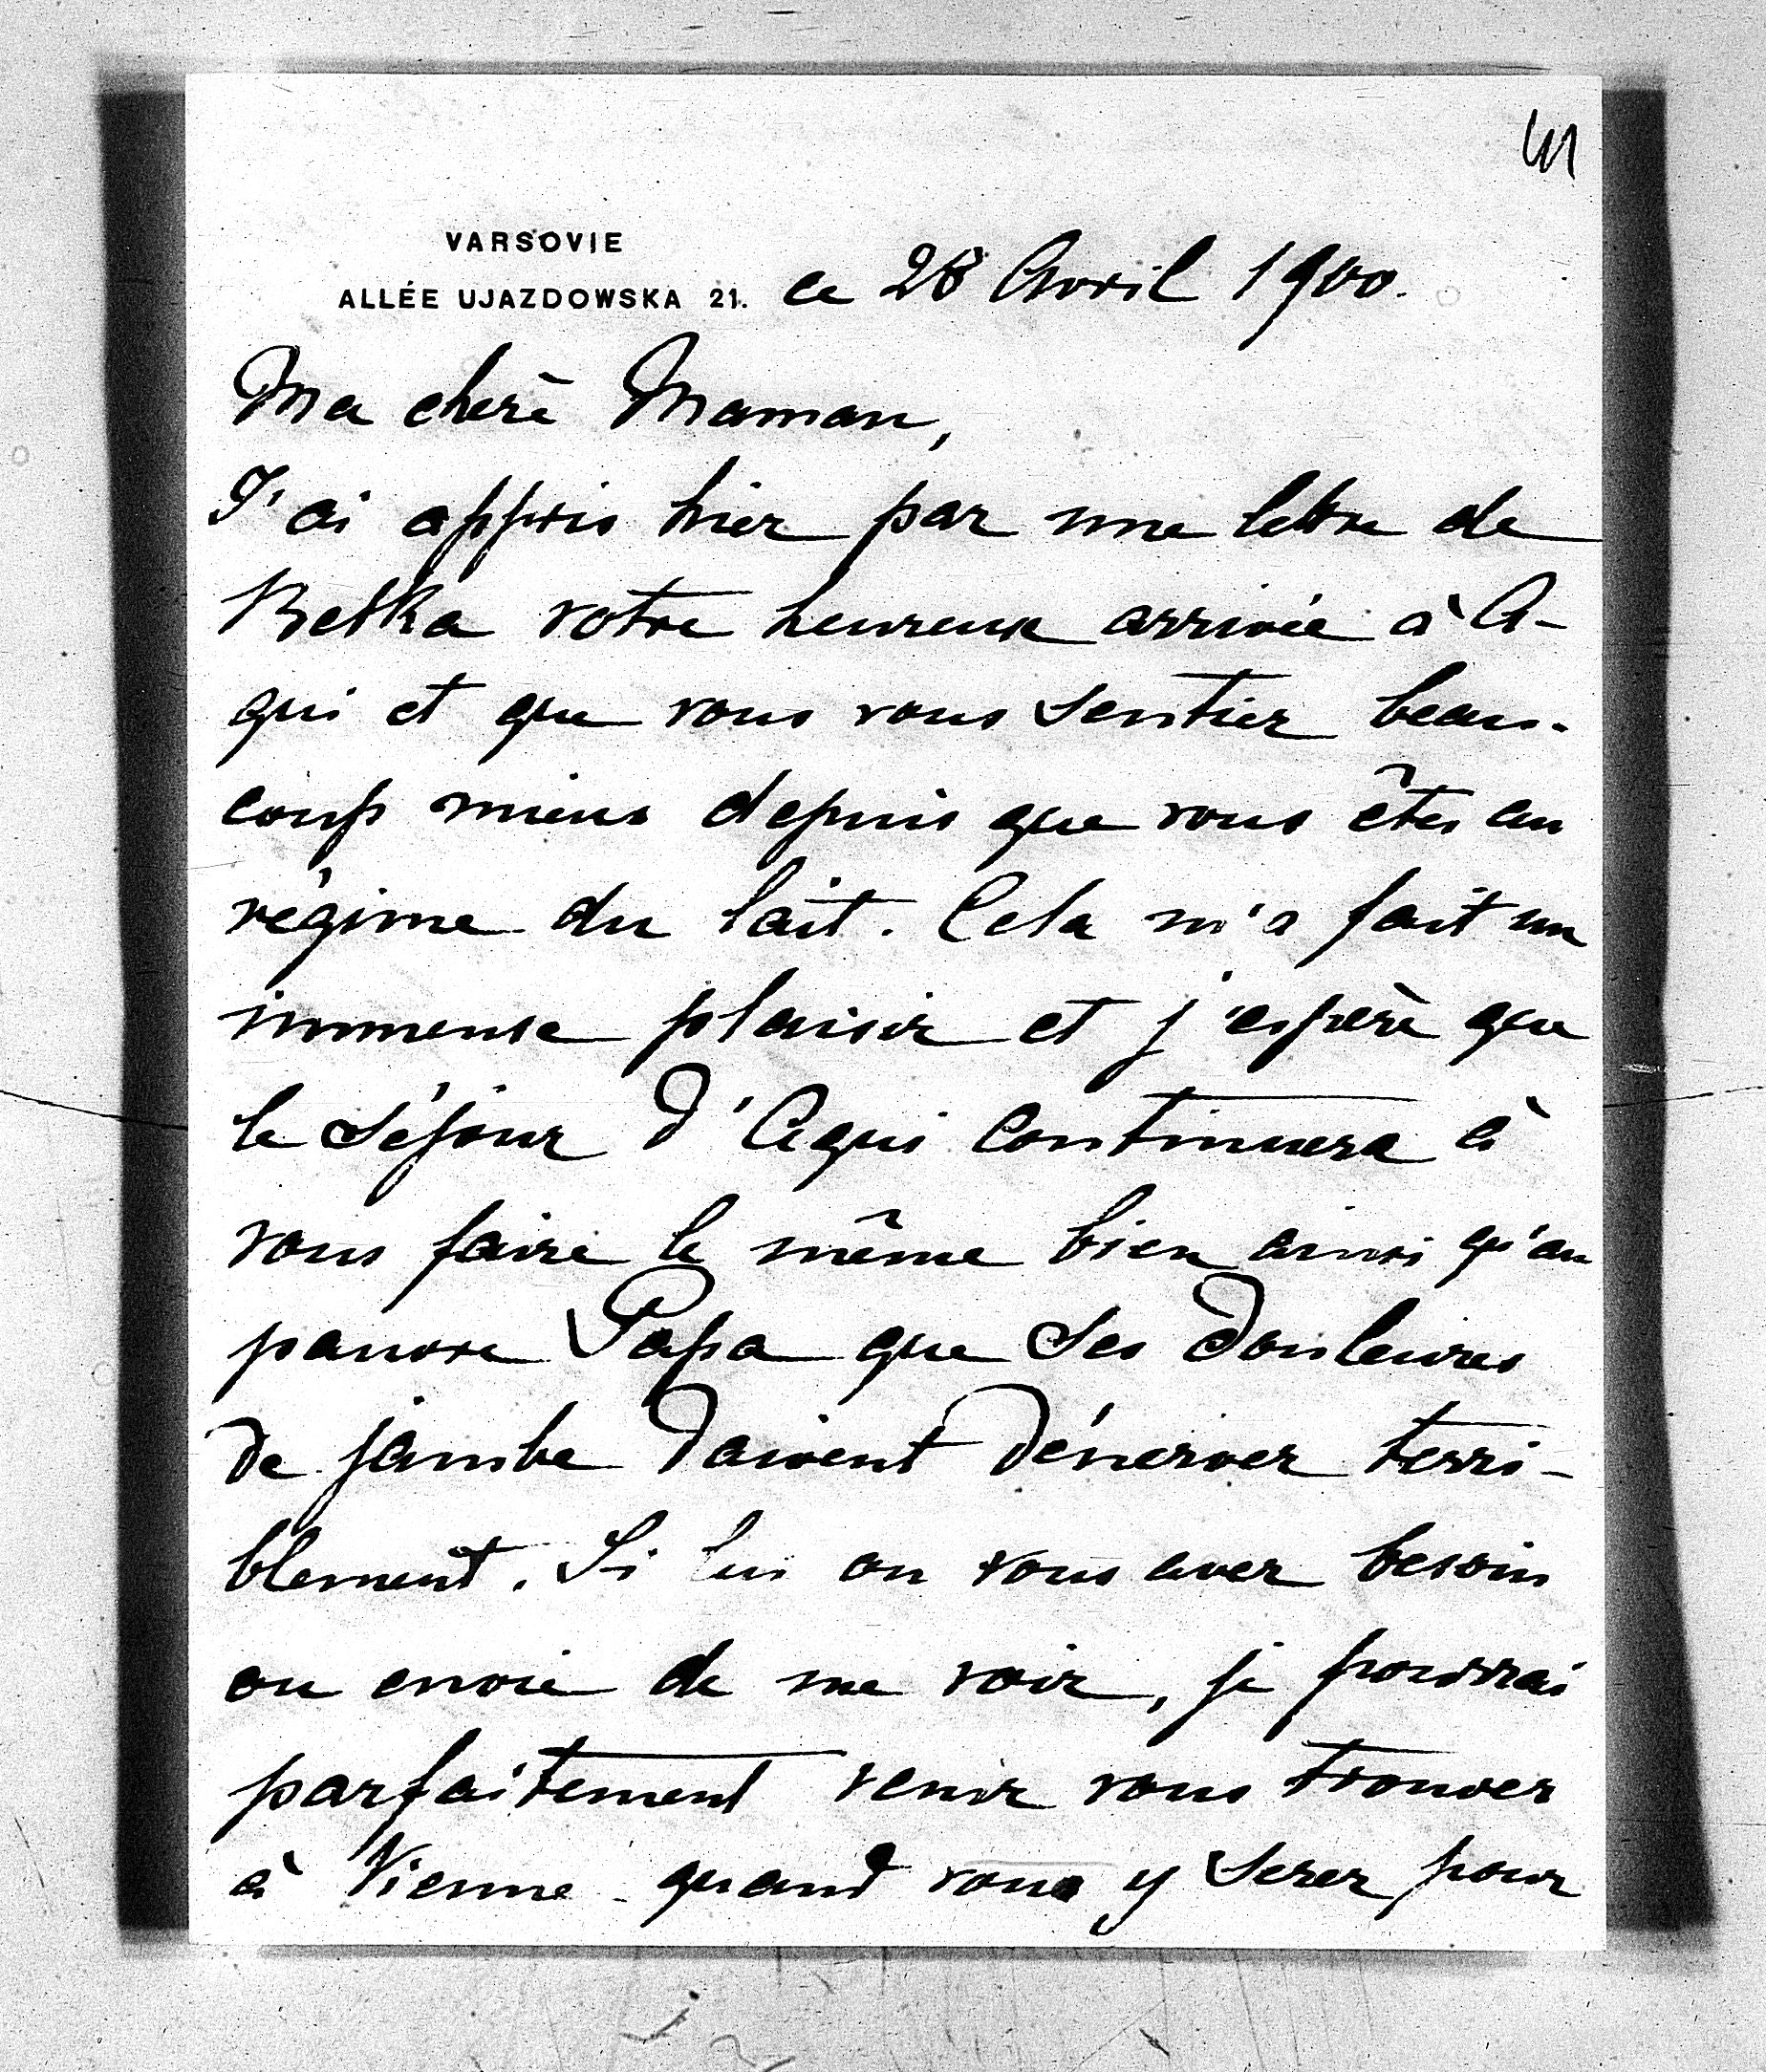 41
VARSOVIE
ALLÉE UJAZDOWSKA 21. ce 28 Avril 1900.
Ma cherè Maman,
J'ai appris hier par une lettre de
Betka votre heureuse arrivée à A-
qui et que vous vous sentier beau-
coup mieux depuis que vous êtes au
régime du lait. Cela m'a fait un
immense plaisir et j'esperè que
le séjour d'Aqui continuera à
vous faire le même bien ainsi qu'au
pauvre Papa que ses douleures
de jambe daivent dénerver terri-
blement. Si lui ou vous aver besoin
ou envie de me voir, je pourrai
parfaitement venir vous trouver
à Vienne quand vous y serer pour